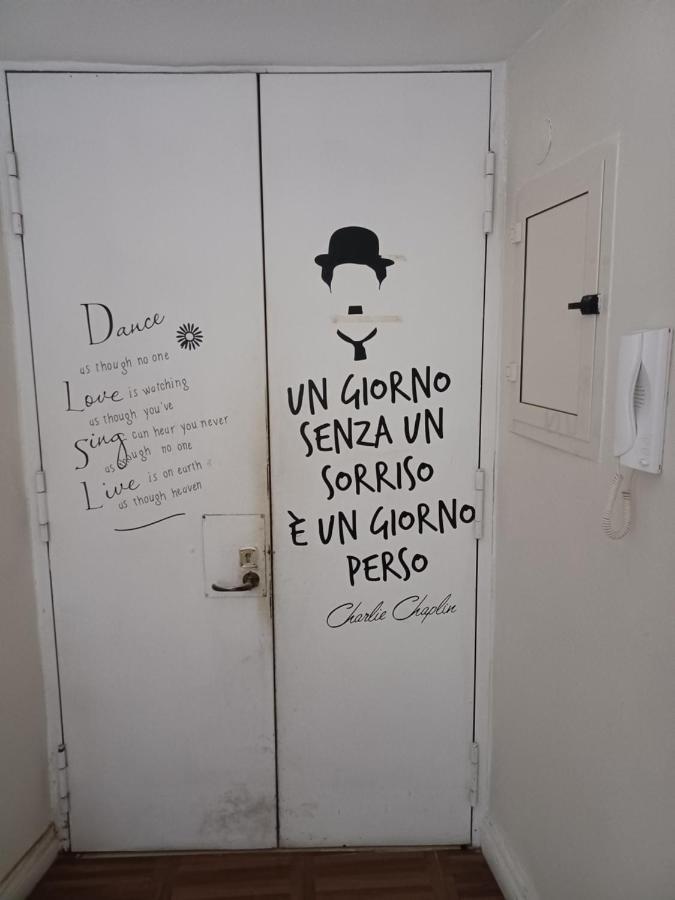 Dance
as though no one
Love is watching
as though you've
Sing can hear you never
as though no one
Live is on earth
as though heaven
UN GIORNO
SENZA UN
SORRISO
È UN GIORNO
PERSO
Charlie Chaplin